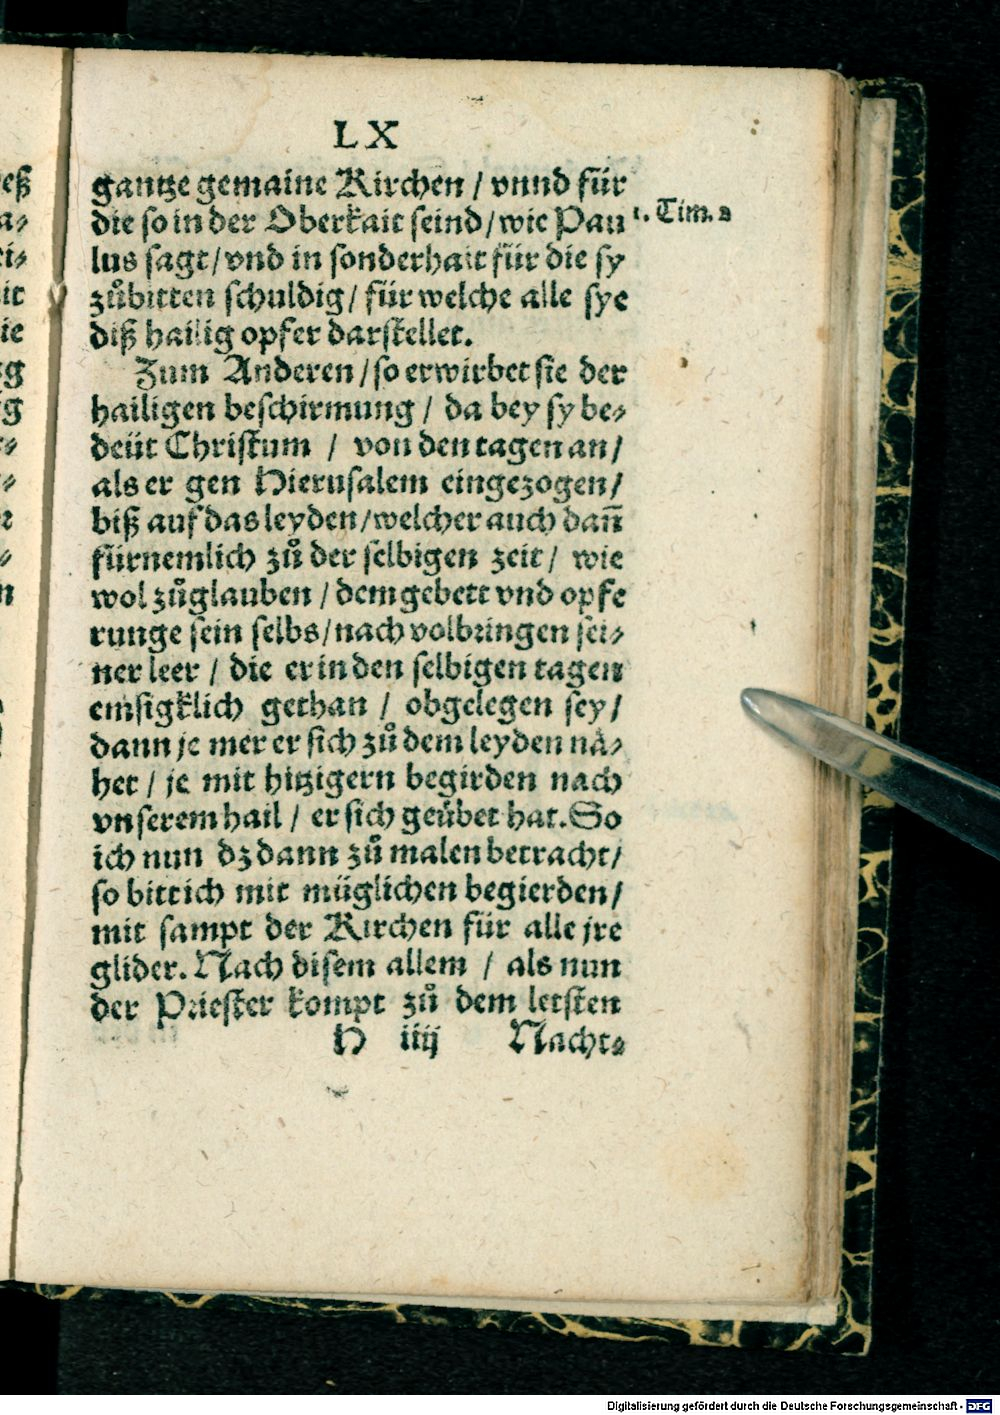 LX
gantze gemaine Kirchen / vnnd für
die so in der Oberkait seind / wie Pau
lus sagt / vnd in sonderhait für die sy
zůbitten schuldig / für welche alle sye
diß hailig opfer darstellet.
1. Tim. 2
Zum Anderen / so erwirbet sie der
hailigen beschirmung / da bey sy be⸗
deüt Christum / von den tagen an /
als er gen Hierusalem eingezogen /
biß auf das leyden / welcher auch dañ
fürnemlich zů der selbigen zeit / wie
wol zůglauben / dem gebett vnd opfe
runge sein selbs / nach volbringen sei⸗
ner leer / die er in den selbigen tagen
emsigklich gethan / obgelegen sey /
dann je mer er sich zů dem leyden nä⸗
het / je mit hitzigern begirden nach
vnserem hail / er sich geübet hat. So
ich nun dz dann zů malen betracht /
so bitt ich mit müglichen begierden /
mit sampt der Kirchen für alle jre
glider. Nach disem allem / als nun
der Priester kompt zů dem letsten
H iiij Nacht⸗
eß
a⸗
ei⸗
it
ie
Digitalisierung gefördert durch die Deutsche Forschungsgemeinschaft - DFG